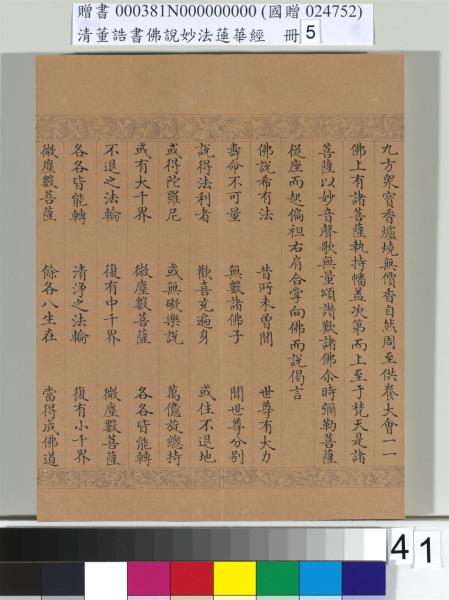 贈書 000381N000000000 (國贈 024752)
清董誥書佛說妙法蓮華經 冊 5
九方眾寶香爐燒無價香自然周至供養大會一一
佛上有諸菩薩執持幡蓋次第而上至于梵天是諸
菩薩以妙音聲歌無量頌讚歎諸佛尒時彌勒菩薩
從座而起偏袒右肩合掌向佛而說偈言
佛說希有法 昔所未曾聞 世尊有大力
壽命不可量 無數諸佛子 聞世尊分別
說得法利者 歡喜充遍身 或住不退地
或得陀羅尼 或無礙樂說 萬億旋總持
或有大千界 微塵數菩薩 各各皆能轉
不退之法輪 復有中千界 微塵數菩薩
各各皆能轉 清淨之法輪 復有小千界
微塵數菩薩 餘各八生在 當得成佛道
41